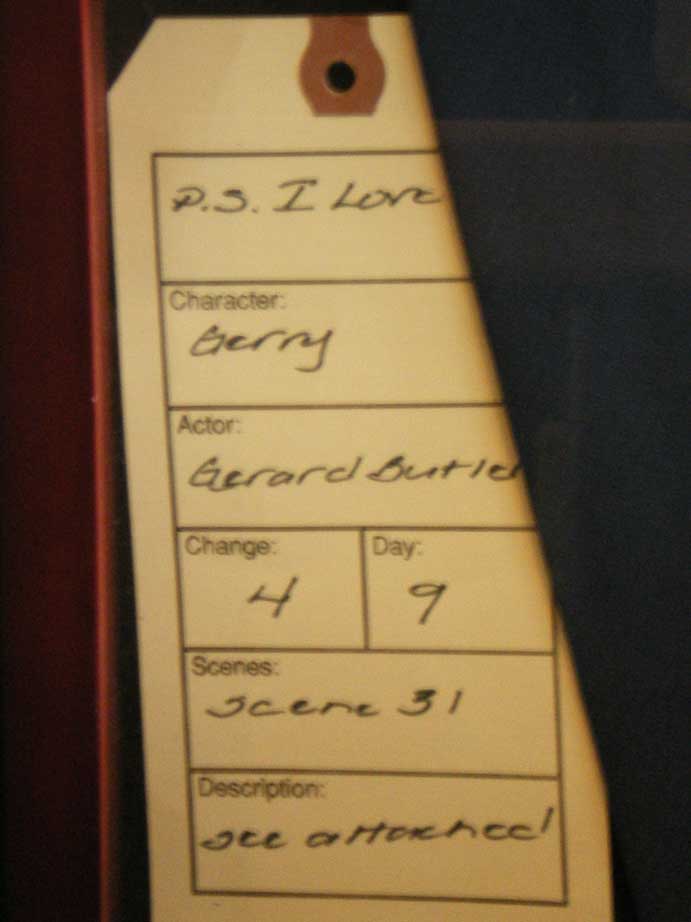 P.S. I Love
Character:
Gerry
Actor:
Gerard Butler
Change: Day:
4 9
Scenes:
Scene 31
Description:
see attached